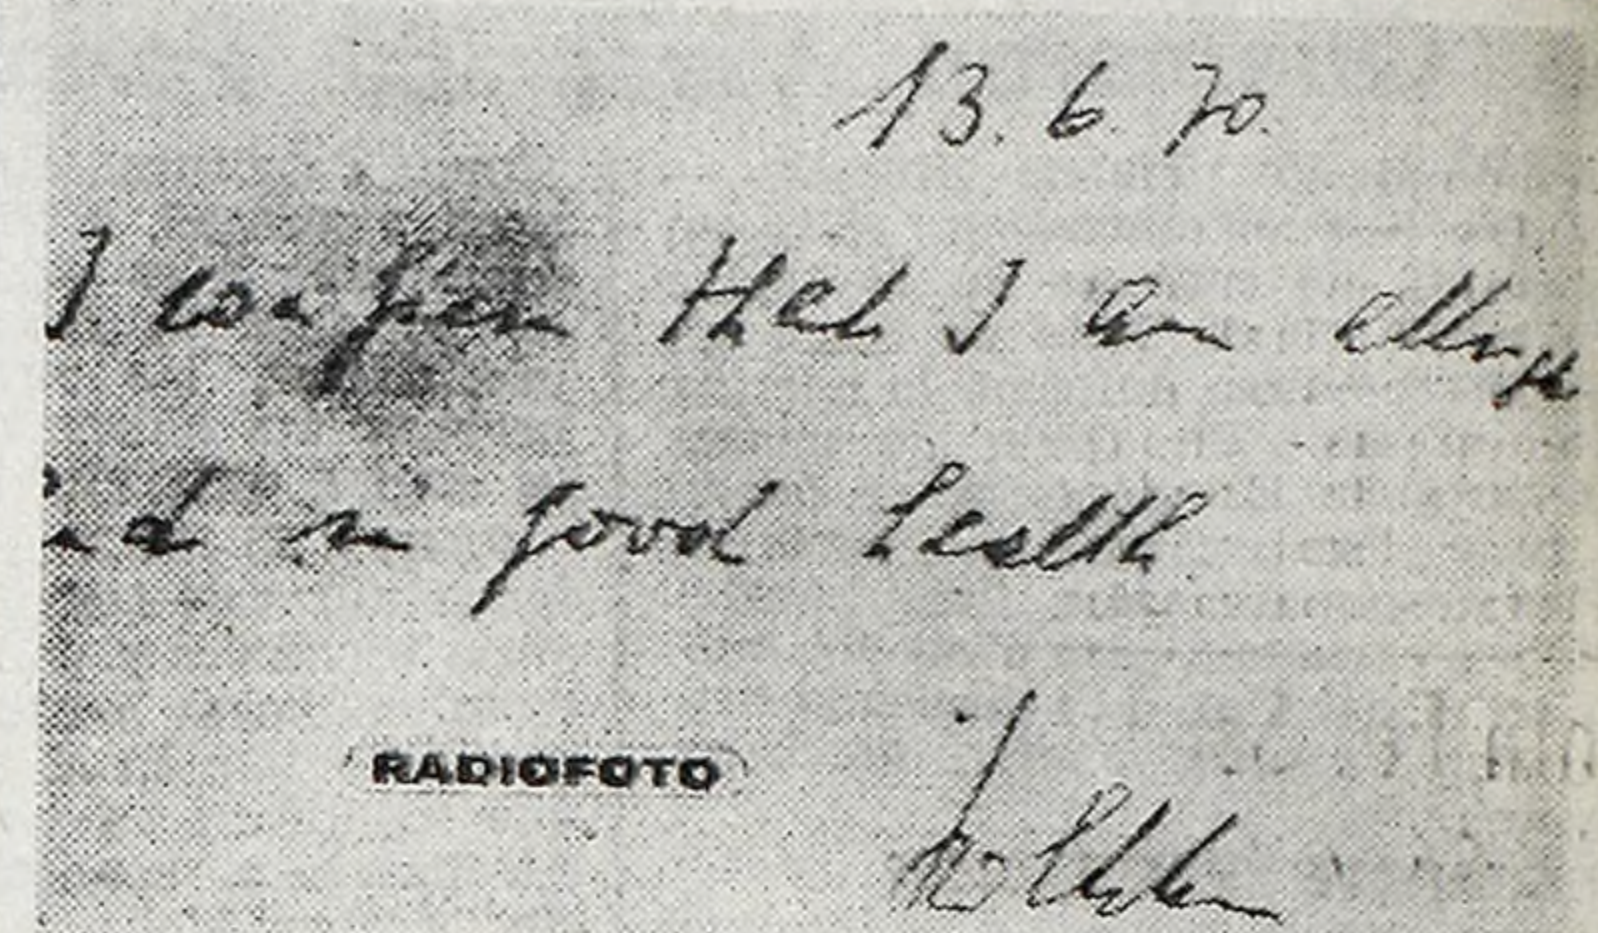 13. 6. 70.
I confirm that I am alive
and in good health
RADIOFOTO